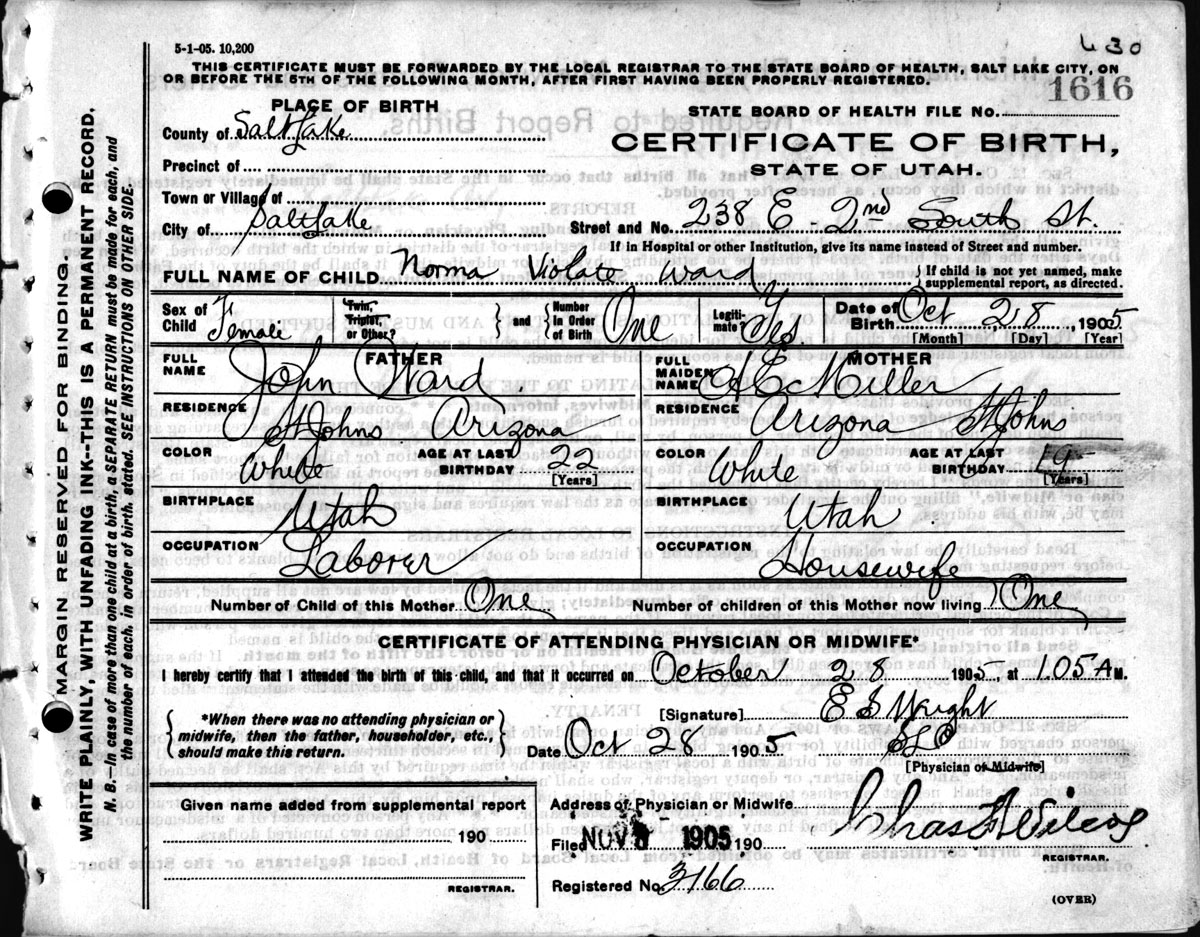 5-1-05. 10,200
630
THIS CERTIFICATE MUST BE FORWARDED BY THE LOCAL REGISTRAR TO THE STATE BOARD OF HEALTH, SALT LAKE CITY, ON
OR BEFORE THE 5TH OF THE FOLLOWING MONTH, AFTER FIRST HAVING BEEN PROPERLY REGISTERED.
1616
PLACE OF BIRTH
STATE BOARD OF HEALTH FILE No.
County of Salt Lake
CERTIFICATE OF BIRTH,
STATE OF UTAH.
Precinct of
Town or Village of
City of Salt Lake Street and No. 238 E - 2nd South St.
If in Hospital or other Institution, give its name instead of Street and number.
FULL NAME OF CHILD Norma Violate Ward } If child is not yet named, make supplemental report, as directed.
Sex of Child Female Twin, Triplet, or Other? } and { Number in Order of Birth One Legiti-mate? Yes Date of Birth Oct 28, 1905
[Month] [Day] [Year]
FATHER MOTHER
FULL NAME John Ward FULL MAIDEN NAME H E Miller
RESIDENCE St Johns Arizona RESIDENCE Arizona St Johns
COLOR White AGE AT LAST BIRTHDAY 22 [Years] COLOR White AGE AT LAST BIRTHDAY 19 [Years]
BIRTHPLACE Utah BIRTHPLACE Utah
OCCUPATION Laborer OCCUPATION Housewife
Number of Child of this Mother One Number of children of this Mother now living One
CERTIFICATE OF ATTENDING PHYSICIAN OR MIDWIFE*
I hereby certify that I attended the birth of this child, and that it occurred on October 28 1905, at 1.05 A M.
{ *When there was no attending physician or midwife, then the father, householder, etc., should make this return. }
[Signature] E S Wright
Date Oct 28 1905 SLC
[Physician or Midwife]
Given name added from supplemental report
190
REGISTRAR.
Address of Physician or Midwife
Filed NOV 1905 190 Chas F Wilcox
REGISTRAR.
Registered No. 3166
(OVER)
MARGIN RESERVED FOR BINDING.
WRITE PLAINLY, WITH UNFADING INK--THIS IS A PERMANENT RECORD.
N. B.--In case of more than one child at a birth, a SEPARATE RETURN must be made for each, and
the number of each, in order of birth, stated. SEE INSTRUCTIONS ON OTHER SIDE.